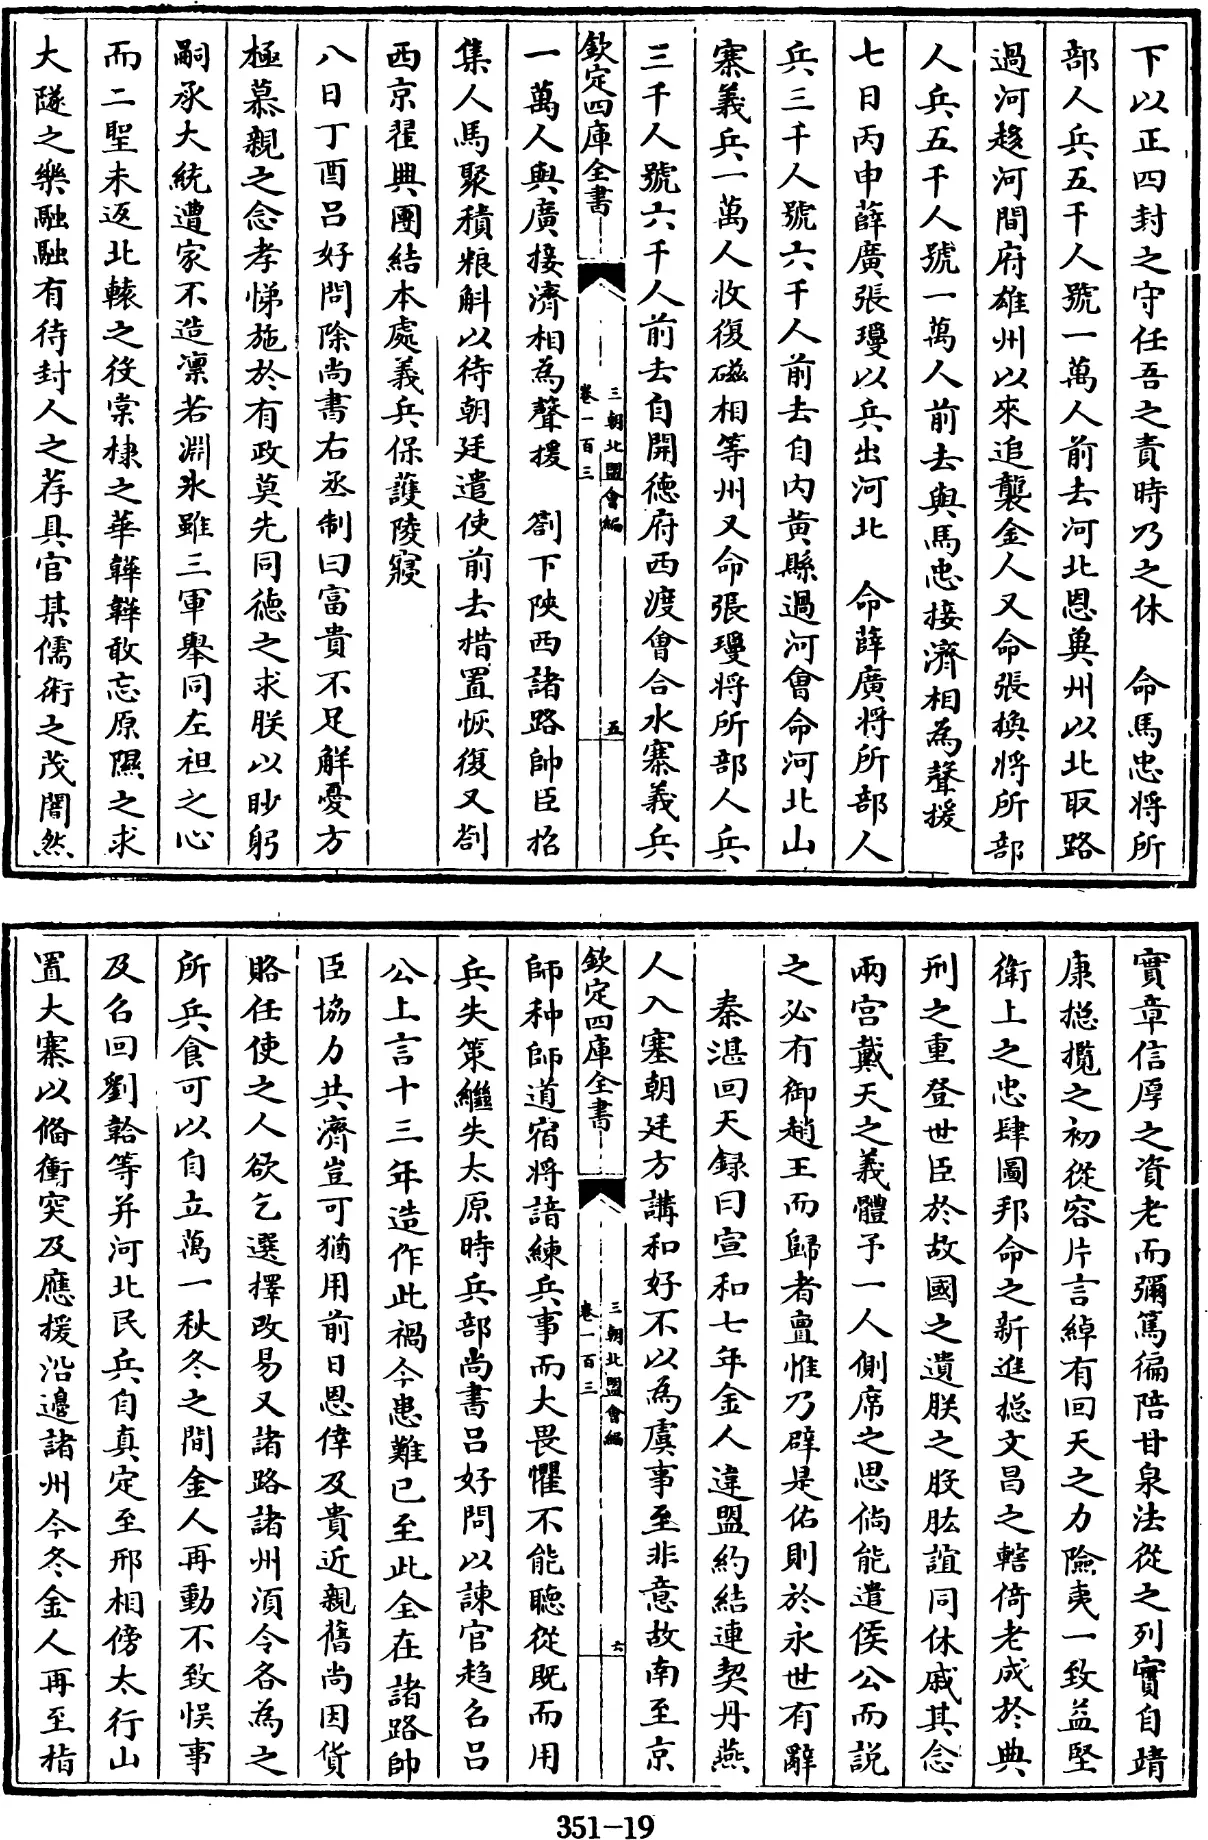 下以正四封之守任吾之責時乃之休　命馬忠将所
部人兵五千人號一萬人前去河北恩冀州以北取路
過河趍河間府雄州以來追襲金人又命張換将所部
人兵五千人號一萬人前去與馬忠接濟相為聲援
七日丙申薛廣張瓊以兵出河北　命薛廣将所部人
兵三千人號六千人前去自内黄縣過河會命河北山
寨義兵一萬人收復磁相等州又命張瓊将所部人兵
三千人號六千人前去自開德府西渡會合水寨義兵
欽定四庫全書
三朝北盟會編
卷一百三
五
一萬人與廣接濟相為聲援　劄下陜西諸路帥臣招
集人馬聚積粮斛以待朝廷遣使前去措置恢復又劄
西京翟興團結本處義兵保護陵寢
八日丁酉吕好問除尚書右丞制曰富貴不足解憂方
極慕親之念孝悌施於有政莫先同德之求朕以眇躬
嗣承大統遭家不造凛若淵氷雖三軍舉同左袒之心
而二聖未返北轅之役棠棣之華韡韡敢忘原隰之求
大隧之樂融融有待封人之荐具官某儒術之茂闇然
實章信厚之資老而彌篤徧陪甘泉法從之列實自靖
康揔攬之初從容片言綽有回天之力險夷一致益堅
衛上之忠肆圖邦命之新進揔文昌之轄倚老成於典
刑之重登世臣於故國之遺朕之股肱誼同休戚其念
兩宫戴天之義體予一人側席之思倘能遣侯公而説
之必有御趙王而歸者亶惟乃辟是佑則於永世有辭
秦湛回天録曰宣和七年金人違盟約結連契丹燕
人入塞朝廷方講和好不以為虞事至非意故南至京
欽定四庫全書
三朝北盟會編
卷一百三
六
師种師道宿将諳練兵事而大畏懼不能聽從既而用
兵失策繼失太原時兵部尚書吕好問以諫官趋召吕
公上言十三年造作此禍今患難已至此全在諸路帥
臣協力共濟豈可猶用前日恩倖及貴近親舊尚因貨
賂任使之人欲乞選擇改易又諸路諸州湏令各為之
所兵食可以自立萬一秋冬之間金人再動不致悞事
及召回劉韐等并河北民兵自真定至邢相傍太行山
置大寨以俻衝突及應援沿邊諸州今冬金人再至指
351-19